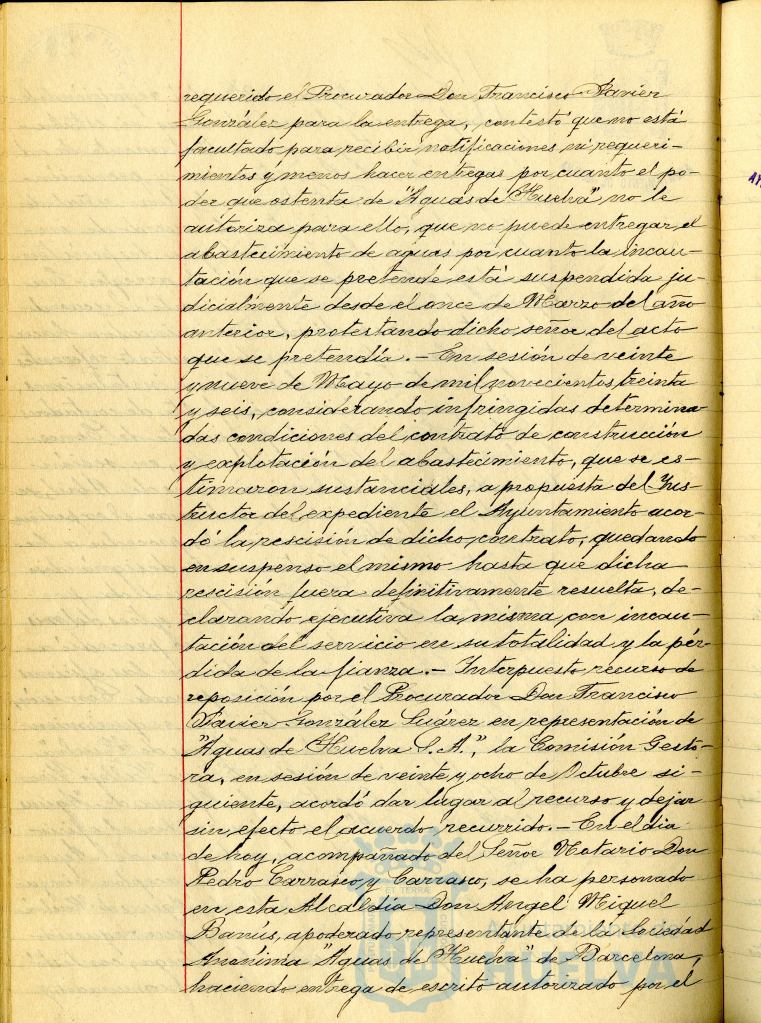 requerido el Procurador Don Francisco Xavier
González para la entrega, contestó que no está
facultado para recibir notificaciones ni requeri-
mientos y menos hacer entregas por cuanto el po-
der que ostenta de "Aguas de Huelva" no le
autoriza para ello, que no puede entregar el
abastecimiento de aguas por cuanto la incau-
tación que se pretende está suspendida ju-
dicialmente desde el once de Marzo del año
anterior, protestando dicho señor del acto
que se pretendía.- En sesión de veinte
y nueve de Mayo de mil novecientos treinta
y seis, considerando infringidas determina-
das condiciones del contrato de construcción
y explotación del abastecimiento, que se es-
timaron sustanciales, a propuesta del Ins-
tructor del expediente el Ayuntamiento acor-
dó la rescisión de dicho contrato, quedando
en suspenso el mismo hasta que dicha
rescisión fuera definitivamente resuelta, de-
clarando ejecutiva la misma con incau-
tación del servicio en su totalidad y la pér-
dida de la fianza.- Interpuesto recurso de
reposición por el Procurador Don Francisco
Xavier González Suárez en representación de
"Aguas de Huelva S.A.", la Comisión Gesto-
ra, en sesión de veinte y ocho de Octubre si-
guiente, acordó dar lugar al recurso y dejar
sin efecto el acuerdo recurrido.- En el dia
de hoy, acompañado del Señor Notario Don
Pedro Carrasco y Carrasco, se ha personado
en esta Alcaldía Don Angel Miquel
Banús, apoderado representante de la Sociedad
Anonima "Aguas de Huelva" de Barcelona,
haciendo entrega de escrito autorizado por el
HUELVA